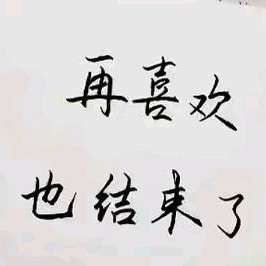 再喜欢
也结束了